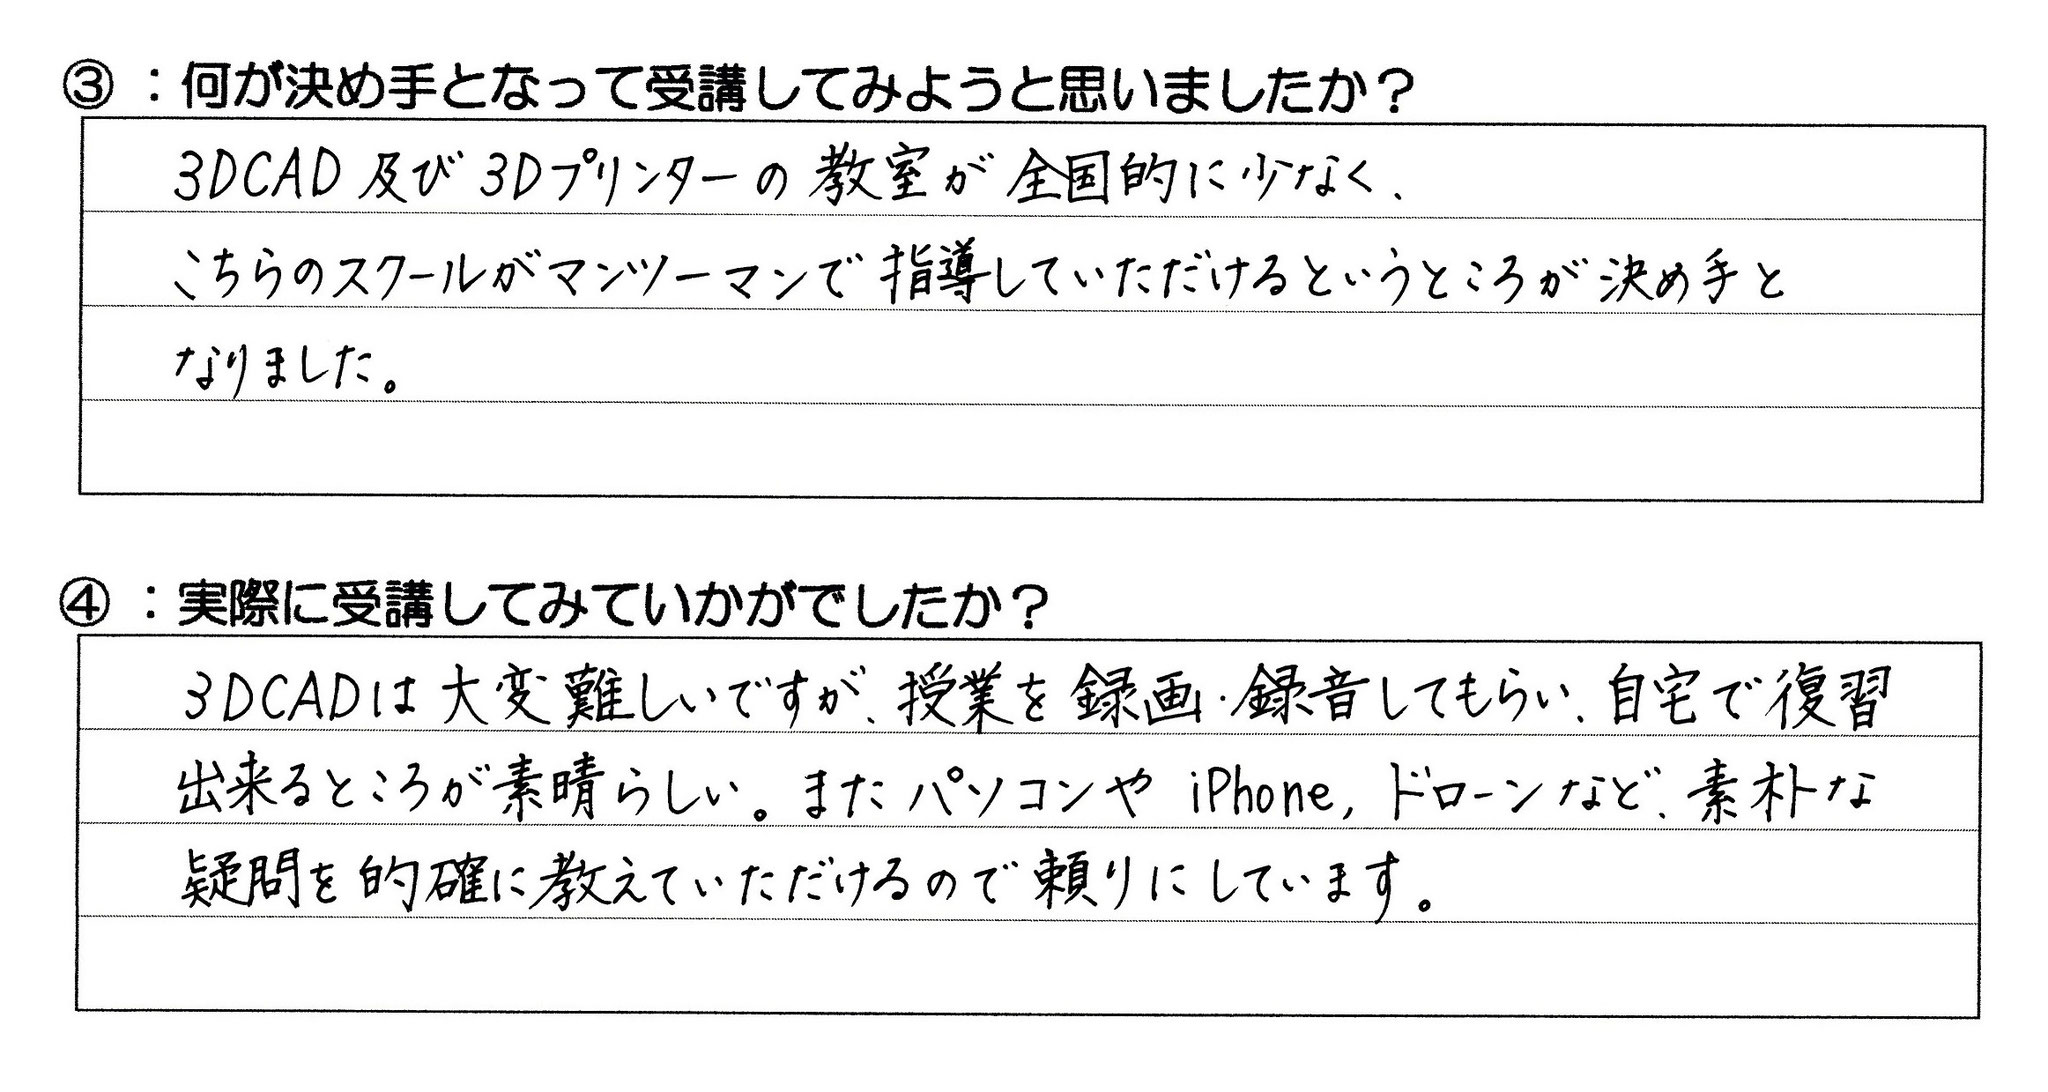 ③：何が決め手となって受講してみようと思いましたか？
3DCAD及び3Dプリンターの教室が全国的に少なく、
こちらのスクールがマンツーマンで指導していただけるというところが決め手と
なりました。
④：実際に受講してみていかがでしたか？
3DCADは大変難しいですが、授業を録画・録音してもらい、自宅で復習
出来るところが素晴らしい。またパソコンやiPhone, ドローンなど、素朴な
疑問を的確に教えていただけるので頼りにしています。